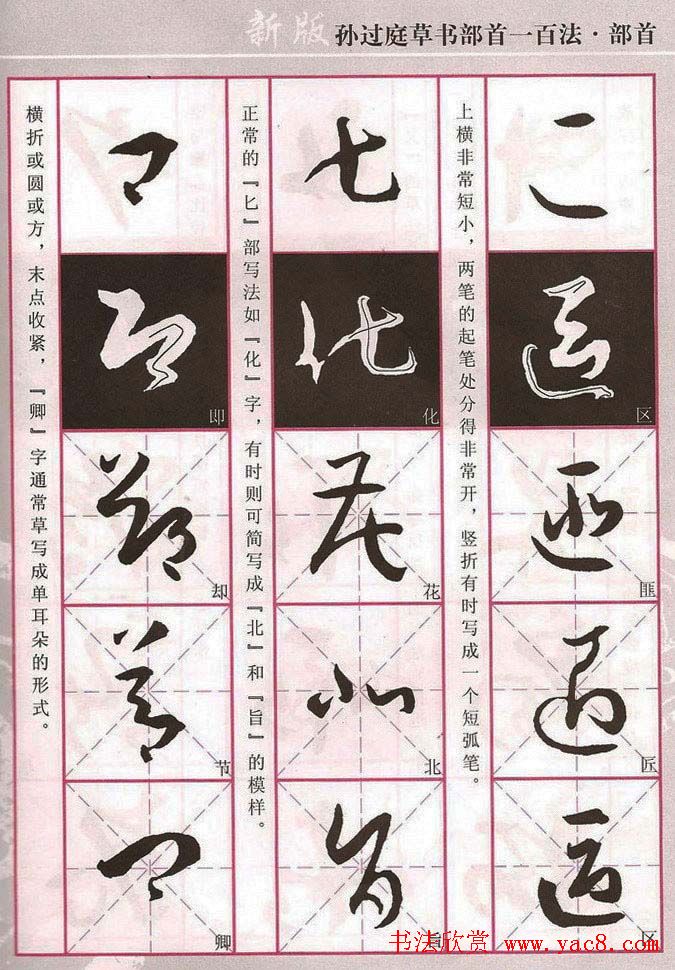 新版 孙过庭草书部首一百法·部首
上横非常短小，两笔的起笔处分得非常开，竖折有时写成一个短弧笔。
区
匪
匠
区
正常的『匕』部写法如『化』字，有时则可简写成『北』和『旨』的模样。
化
花
北
旨
横折或圆或方，末点收紧，『卿』字通常草写成单耳朵的形式。
即
却
节
卿
书法欣赏 www.yac8.com